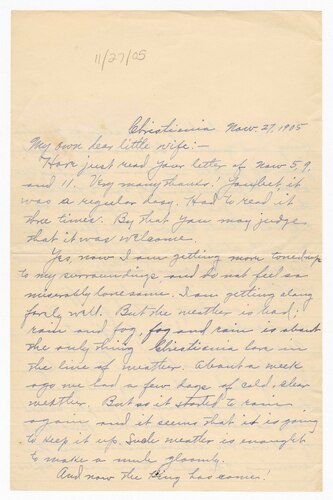 11/27/05
Christiania Nov. 27, 1905
My own dear little wife:-
Have just read your letter of Nov 5, 9,
and 11. Very many thanks. You bet it
was a regular day. Had to read it
three times. By that you may judge
that it was welcome.
Yes, now I am getting more toned up
to my surroundings and do not feel so
miserably lonesome. I am getting along
fairly well. But the weather is bad;
rain and fog, fog and rain is about
the only thing Christiania love in
the line of weather. About a week
ago we had a few days of cold, clear
weather. But as it started to rain
again and it seems that it is going
to keep it up. Such weather is enough
to make a mule gloomy.
And now the King has come!